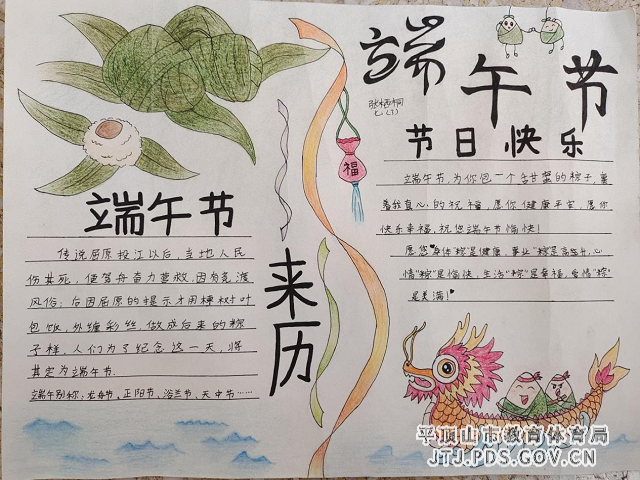 端午节
节日快乐
七(1)
端午节
传说屈原投江以后，当地人民
伤其死，便驾舟奋力营救，因有竞渡
风俗；后因屈原的提示才用楝树叶
包饭，外缠彩丝，做成后来的粽
子样，人们为了纪念这一天，将
其定为端午节.
端午别称：龙舟节，正阳节，浴兰节，天中节……
来历
福
端午节，为你包一个甘甜蜜的粽子，裹
着我真心的祝福，愿你健康平安，愿你
快乐幸福，祝您端午节愉快！
愿您身体“粽”是健康，事业“粽”是高升，心
情“粽”是愉快，生活“粽”是幸福，爱情“粽”
是美满！
平顶山市教育体育局
JTJ.PDS.GOV.CN